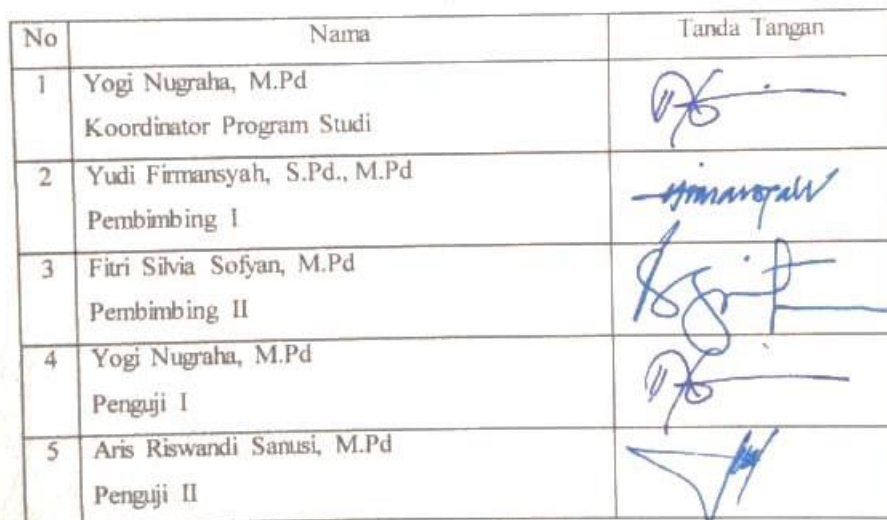 No Nama Tanda Tangan
1 Yogi Nugraha, M.Pd
Koordinator Program Studi
2 Yudi Firmansyah, S.Pd., M.Pd
Pembimbing I
3 Fitri Silvia Sofyan, M.Pd
Pembimbing II
4 Yogi Nugraha, M.Pd
Penguji I
5 Aris Riswandi Sanusi, M.Pd
Penguji II